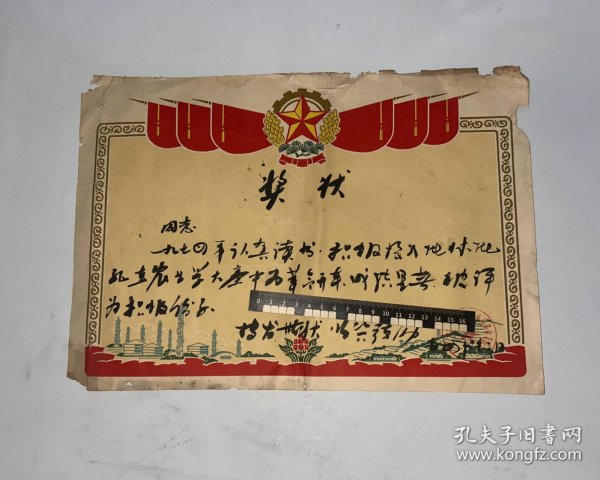 奖状
同志
一九七四年认真读书 积极投入批林批
孔 在农业学大寨中 成绩显著 被评
为积极份子
特发此状 以资鼓励
0 1 2 3 4 5 6 7 8 9 10 11 12 13 14 15 16
孔夫子旧书网
www.kongfz.com